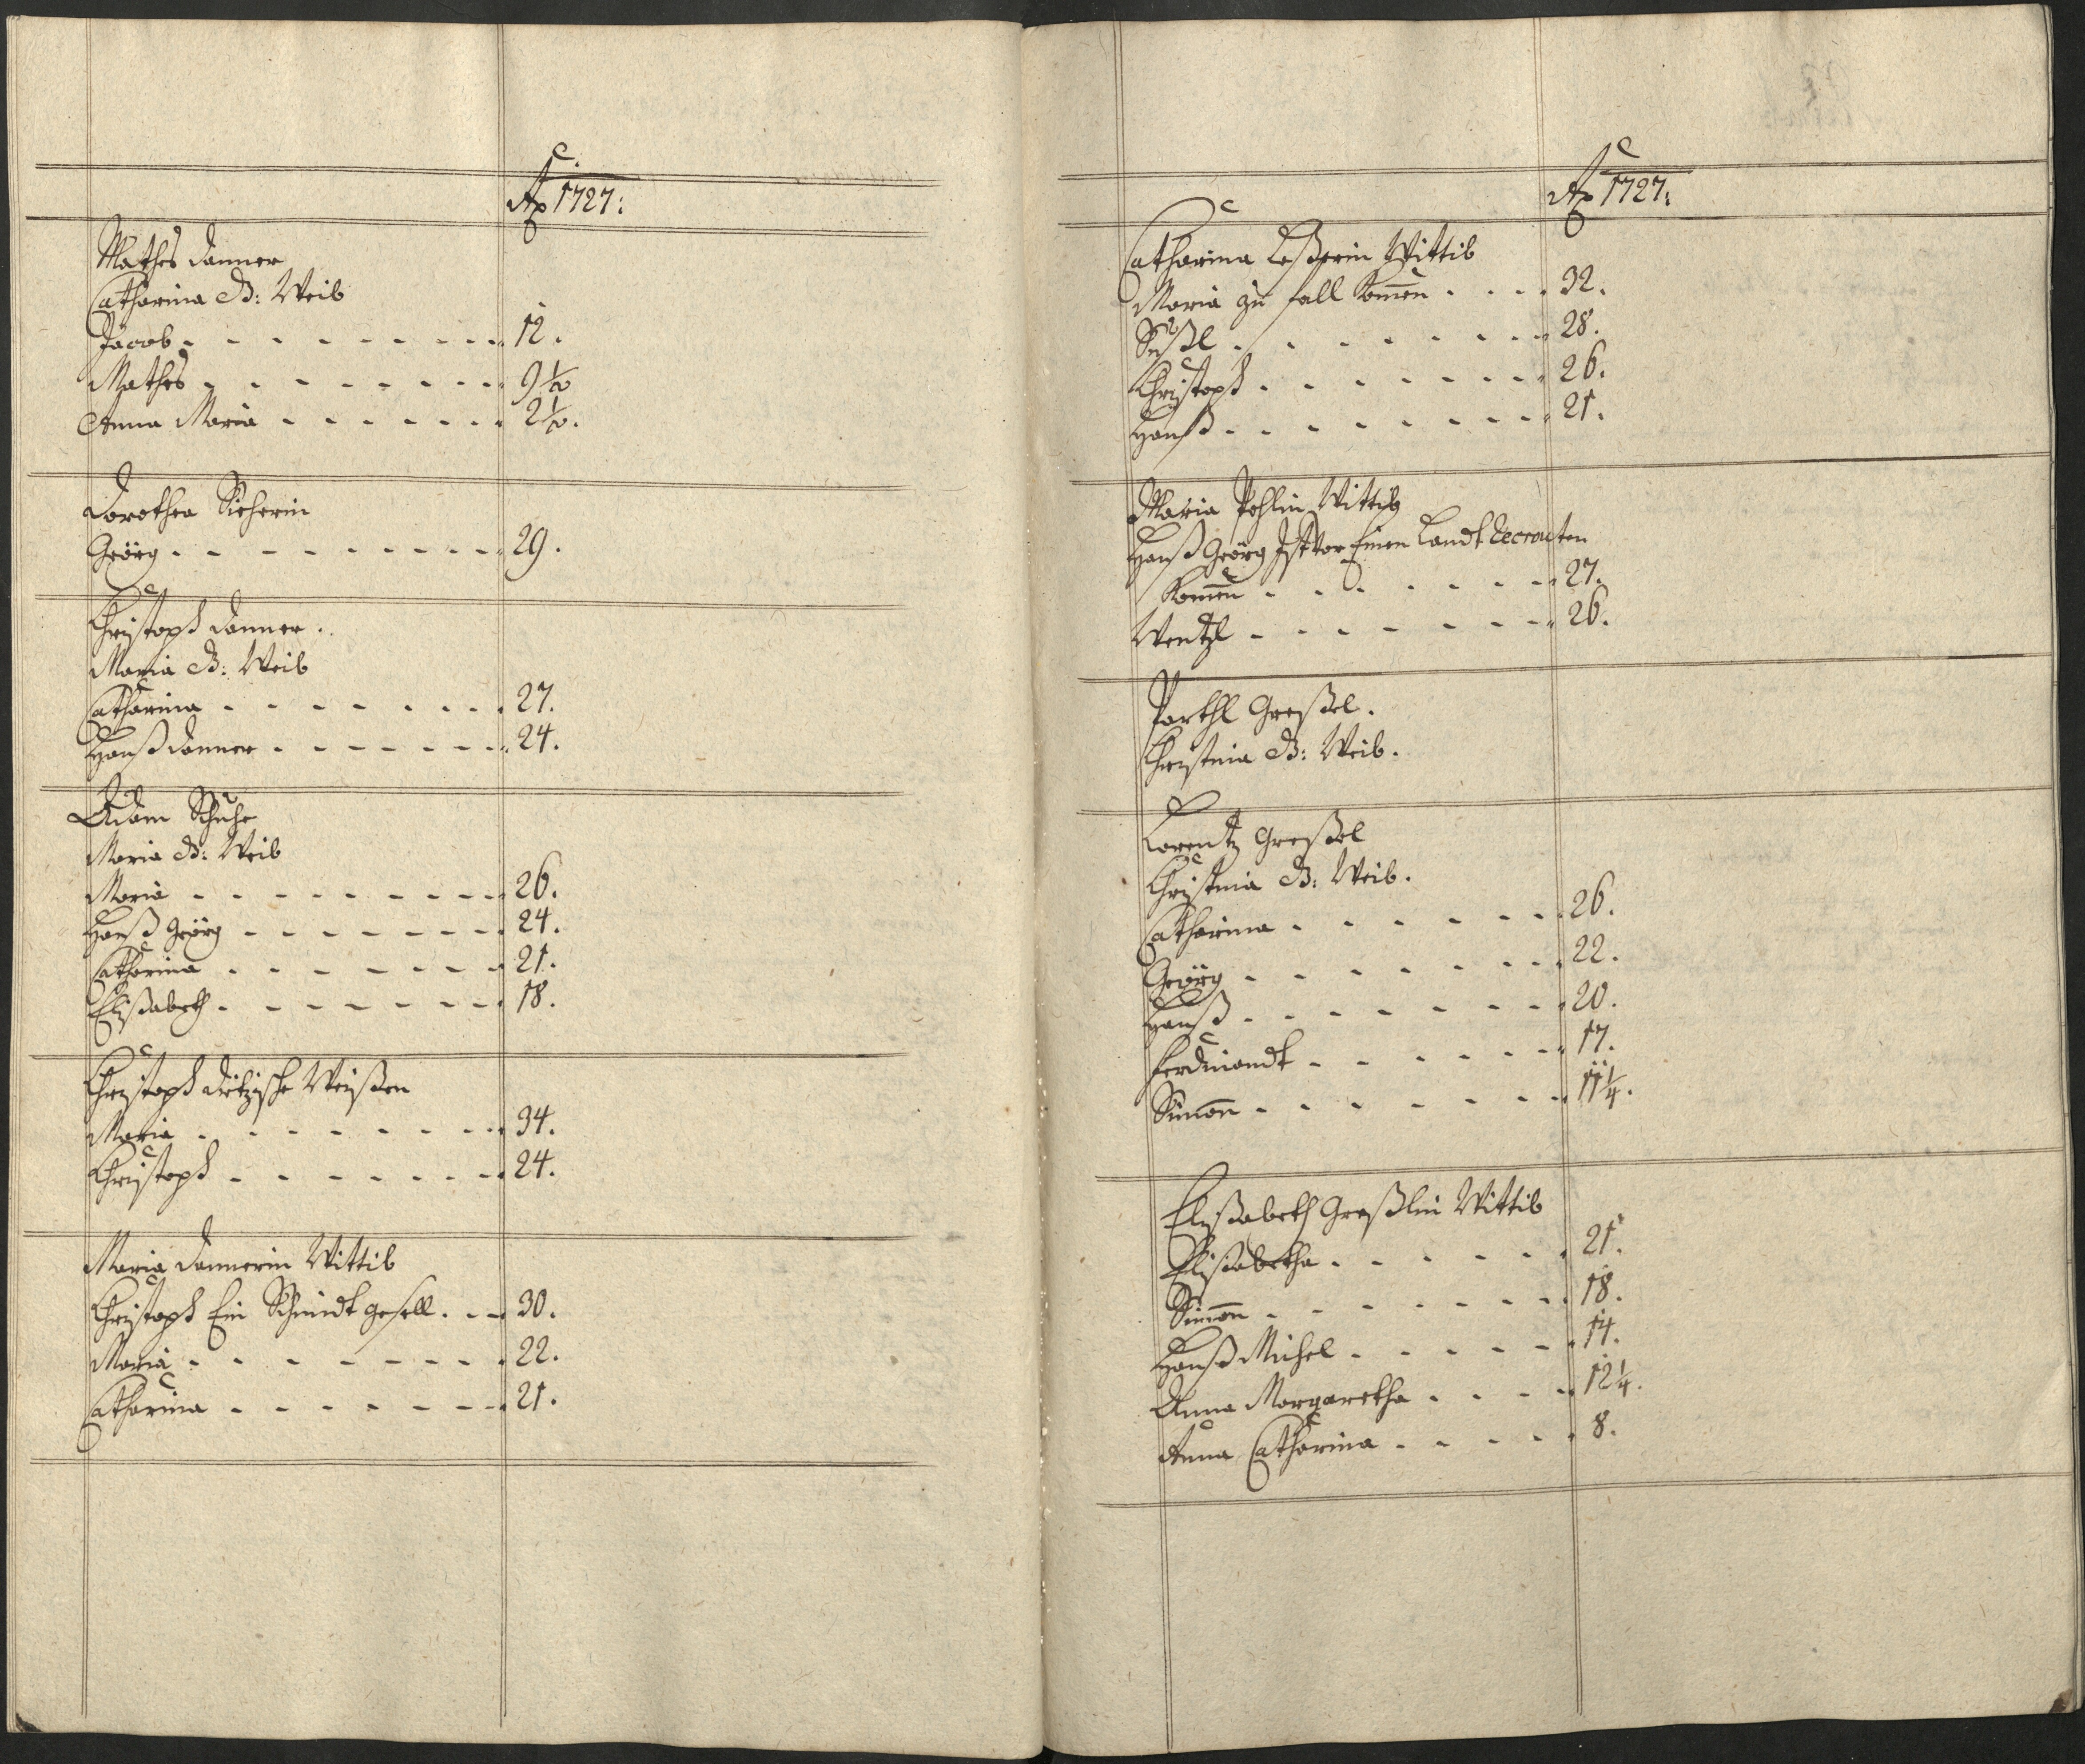 Ao 1727:
Mathes Danner
Catharina S: Weib
Jacob 12.
Mathes 9 1/2
Anna Maria 2 1/2.
Dorothea
Geörg 29.
Christoph Danner.
Maria S: Weib
Catharina 27.
Hanß Danner 24.
Adam
Maria S: Weib
Maria 26.
Hanß Geörg 24.
Catharina 21.
Elißabeth 18.
Christoph Weißen
Maria 34.
Christoph 24.
Maria Dannerin Wittib
Christoph Ein Schmidt gesell 30.
Maria 22.
Catharina 21.
Ao 1727:
Catharina Wittib
Maria zu fall komen 32.
28.
Christoph 26.
Hanß 21.
Maria Pohlin Wittib
Hanß Geörg Ist vor Einen Landt Recrouten
komen 27.
Wentzl 26.
Parthl Greßel.
Christina S: Weib.
Lorentz Greßel
Christina S: Weib.
Catharina 26.
Geörg 22.
Hanß 20.
Ferdinandt 17.
Simon 11 1/4.
Elißabeth Greßlin Wittib
Elisabetha 21.
Simon 18.
Hanß Michel 14.
Anna Margaretha 12 1/4.
Anna Catharina 8.